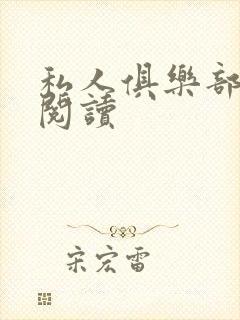 私人俱樂部
閱讀
宋宏雷